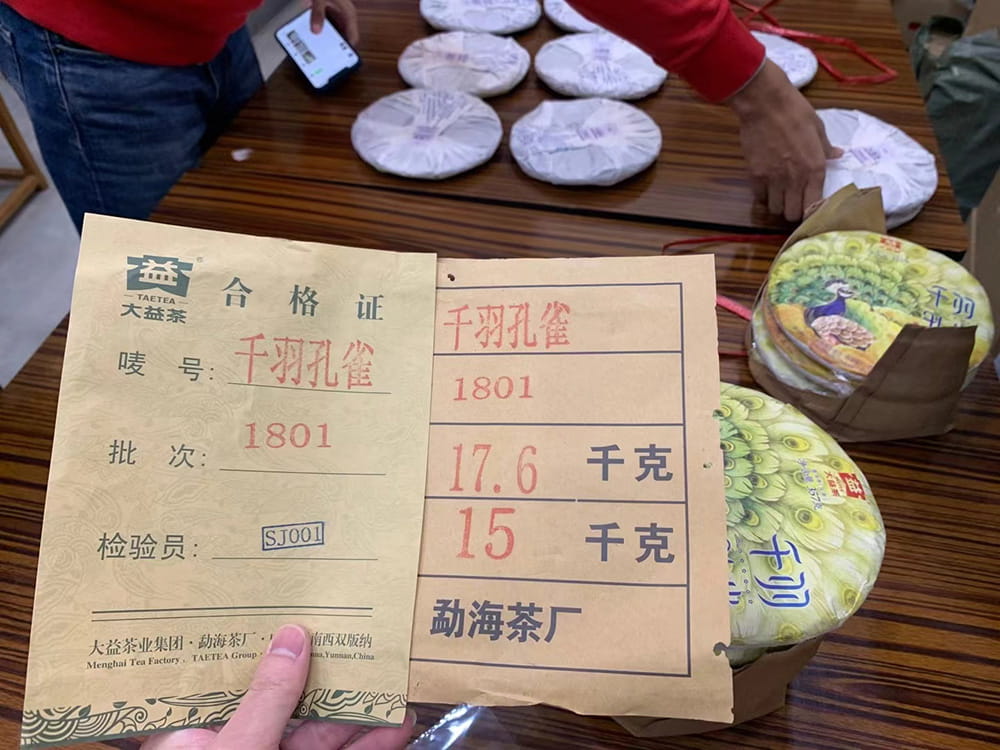 益
TAETEA
大益茶
合格证
唛 号: 千羽孔雀
批 次: 1801
检验员: SJ001
大益茶业集团·勐海茶厂·
南西双版纳
Menghai Tea Factory、TAETEA Group
Yunnan,China
千羽孔雀
1801
17.6 千克
15 千克
勐海茶厂
千羽
益
大益
357g
千羽